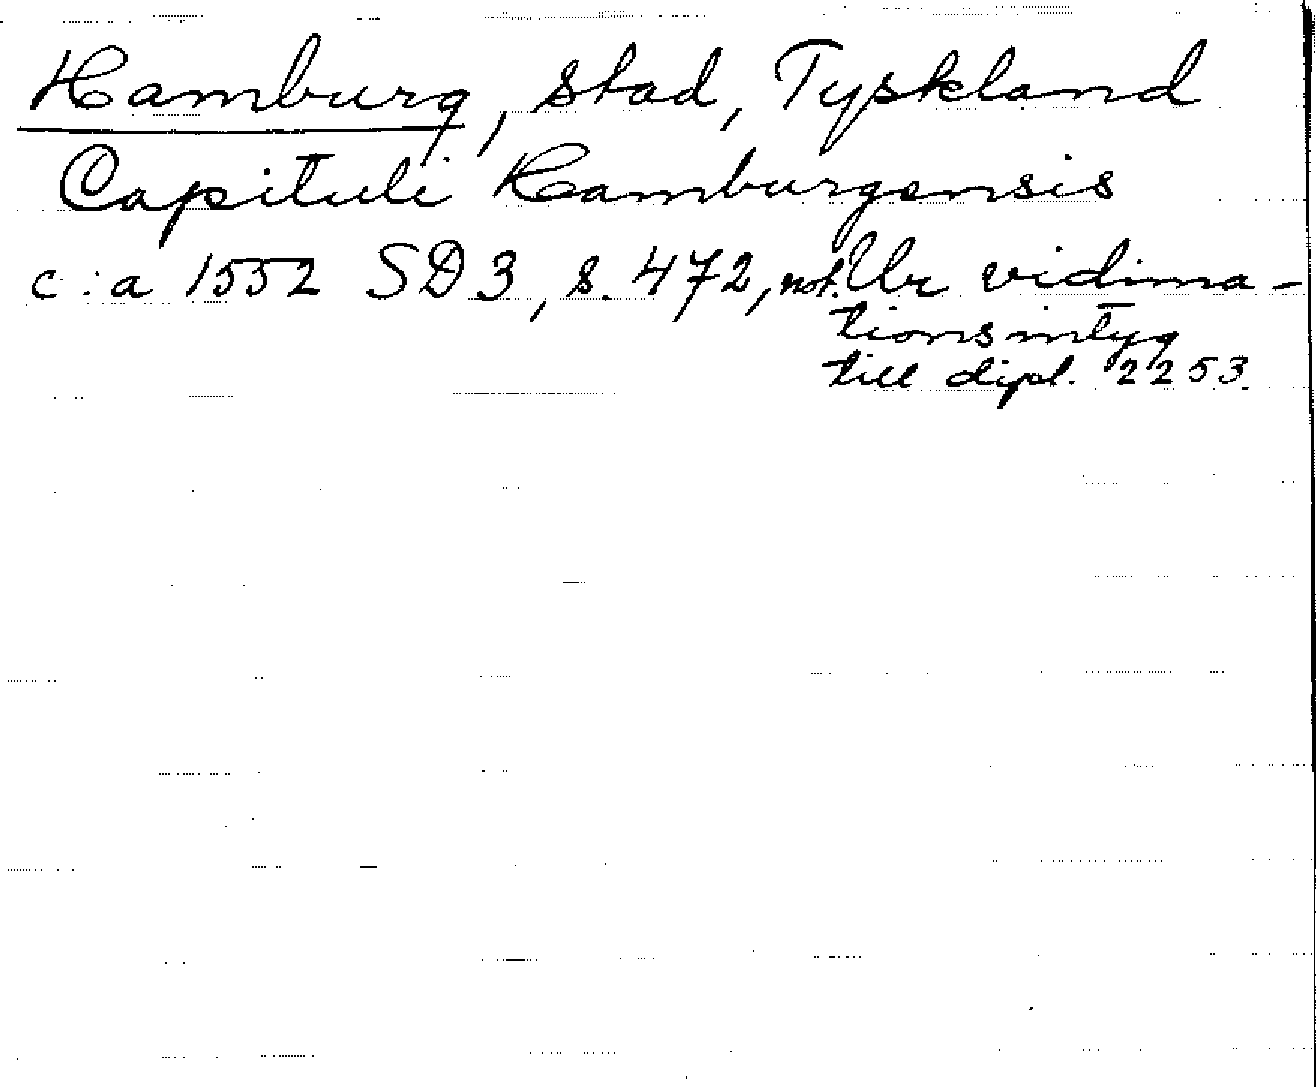 Hamburg, stad, Tyskland
Capituli Hamburgensis
c:a 1552 SD 3, s. 472, not. Ur vidima-
tionsintyg
till dipl. 2253.